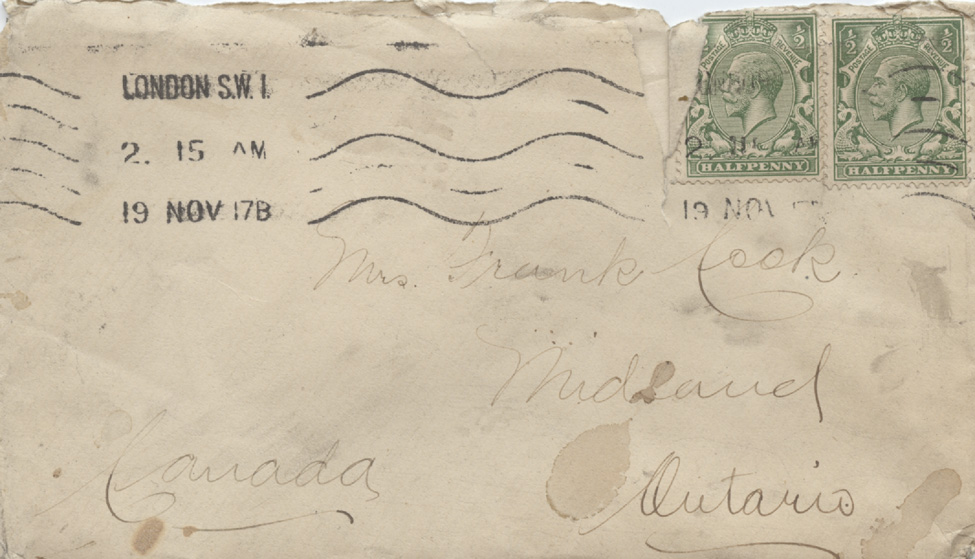 LONDON S.W.1.
2. 15 AM
19 NOV 17B
½ POSTAGE REVENUE ½
HALFPENNY
½ POSTAGE REVENUE ½
HALFPENNY
19 NOV 17
Mrs. Frank Cook.
Midland
Ontario
Canada